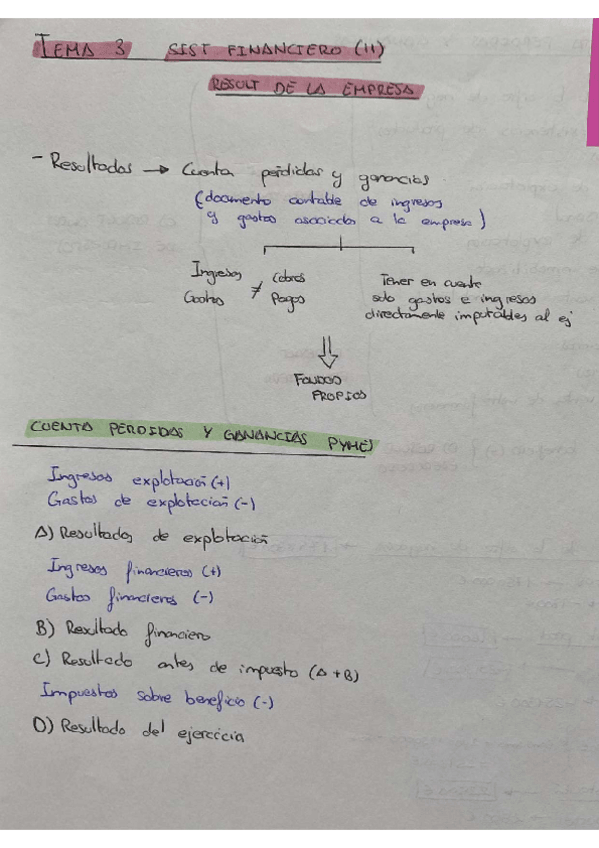 TEMA 3 SIST FINANCIERO (II)
RESULT DE LA EMPRESA
- Resultados → Cuenta pérdidas y ganancias.
(documento contable de ingresos
y gastos asociados a la empresa)
Ingresos ≠ Cobros
Gastos Pagos
Tener en cuenta
solo gastos e ingresos
directamente imputables al ej
FONDOS
PROPIOS
CUENTA PERDIDAS Y GANANCIAS PYMES
Ingresos explotación (+)
Gastos de explotación (-)
A) Resultados de explotación
Ingresos financieros (+)
Gastos financieros (-)
B) Resultado financiero
C) Resultado antes de impuesto (A+B)
Impuestos sobre beneficio (-)
D) Resultado del ejercicio